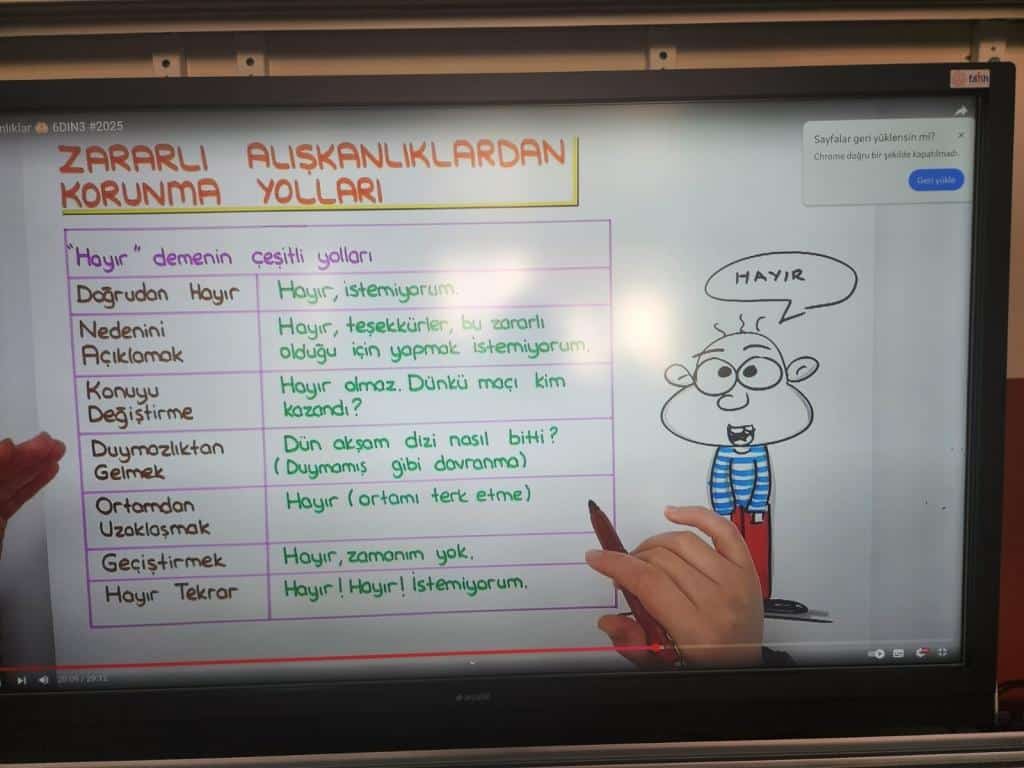 fatih
nlıklar 6DIN3 #2025
Sayfalar geri yüklensin mi?
Chrome doğru bir şekilde kapatılmadı.
Geri yükle
ZARARLI ALIŞKANLIKLARDAN
KORUNMA YOLLARI
"Hayır" demenin çeşitli yolları
Doğrudan Hayır
Hayır, istemiyorum.
Nedenini
Açıklamak
Hayır, teşekkürler, bu zararlı
olduğu için yapmak istemiyorum.
Konuyu
Değiştirme
Hayır olmaz. Dünkü maçı kim
kazandı?
Duymazlıktan
Gelmek
Dün akşam dizi nasıl bitti?
(Duymamış gibi davranma)
Ortamdan
Uzaklaşmak
Hayır (ortamı terk etme)
Geçiştirmek
Hayır, zamanım yok.
Hayır Tekrar
Hayır! Hayır! İstemiyorum.
HAYIR
arçelik